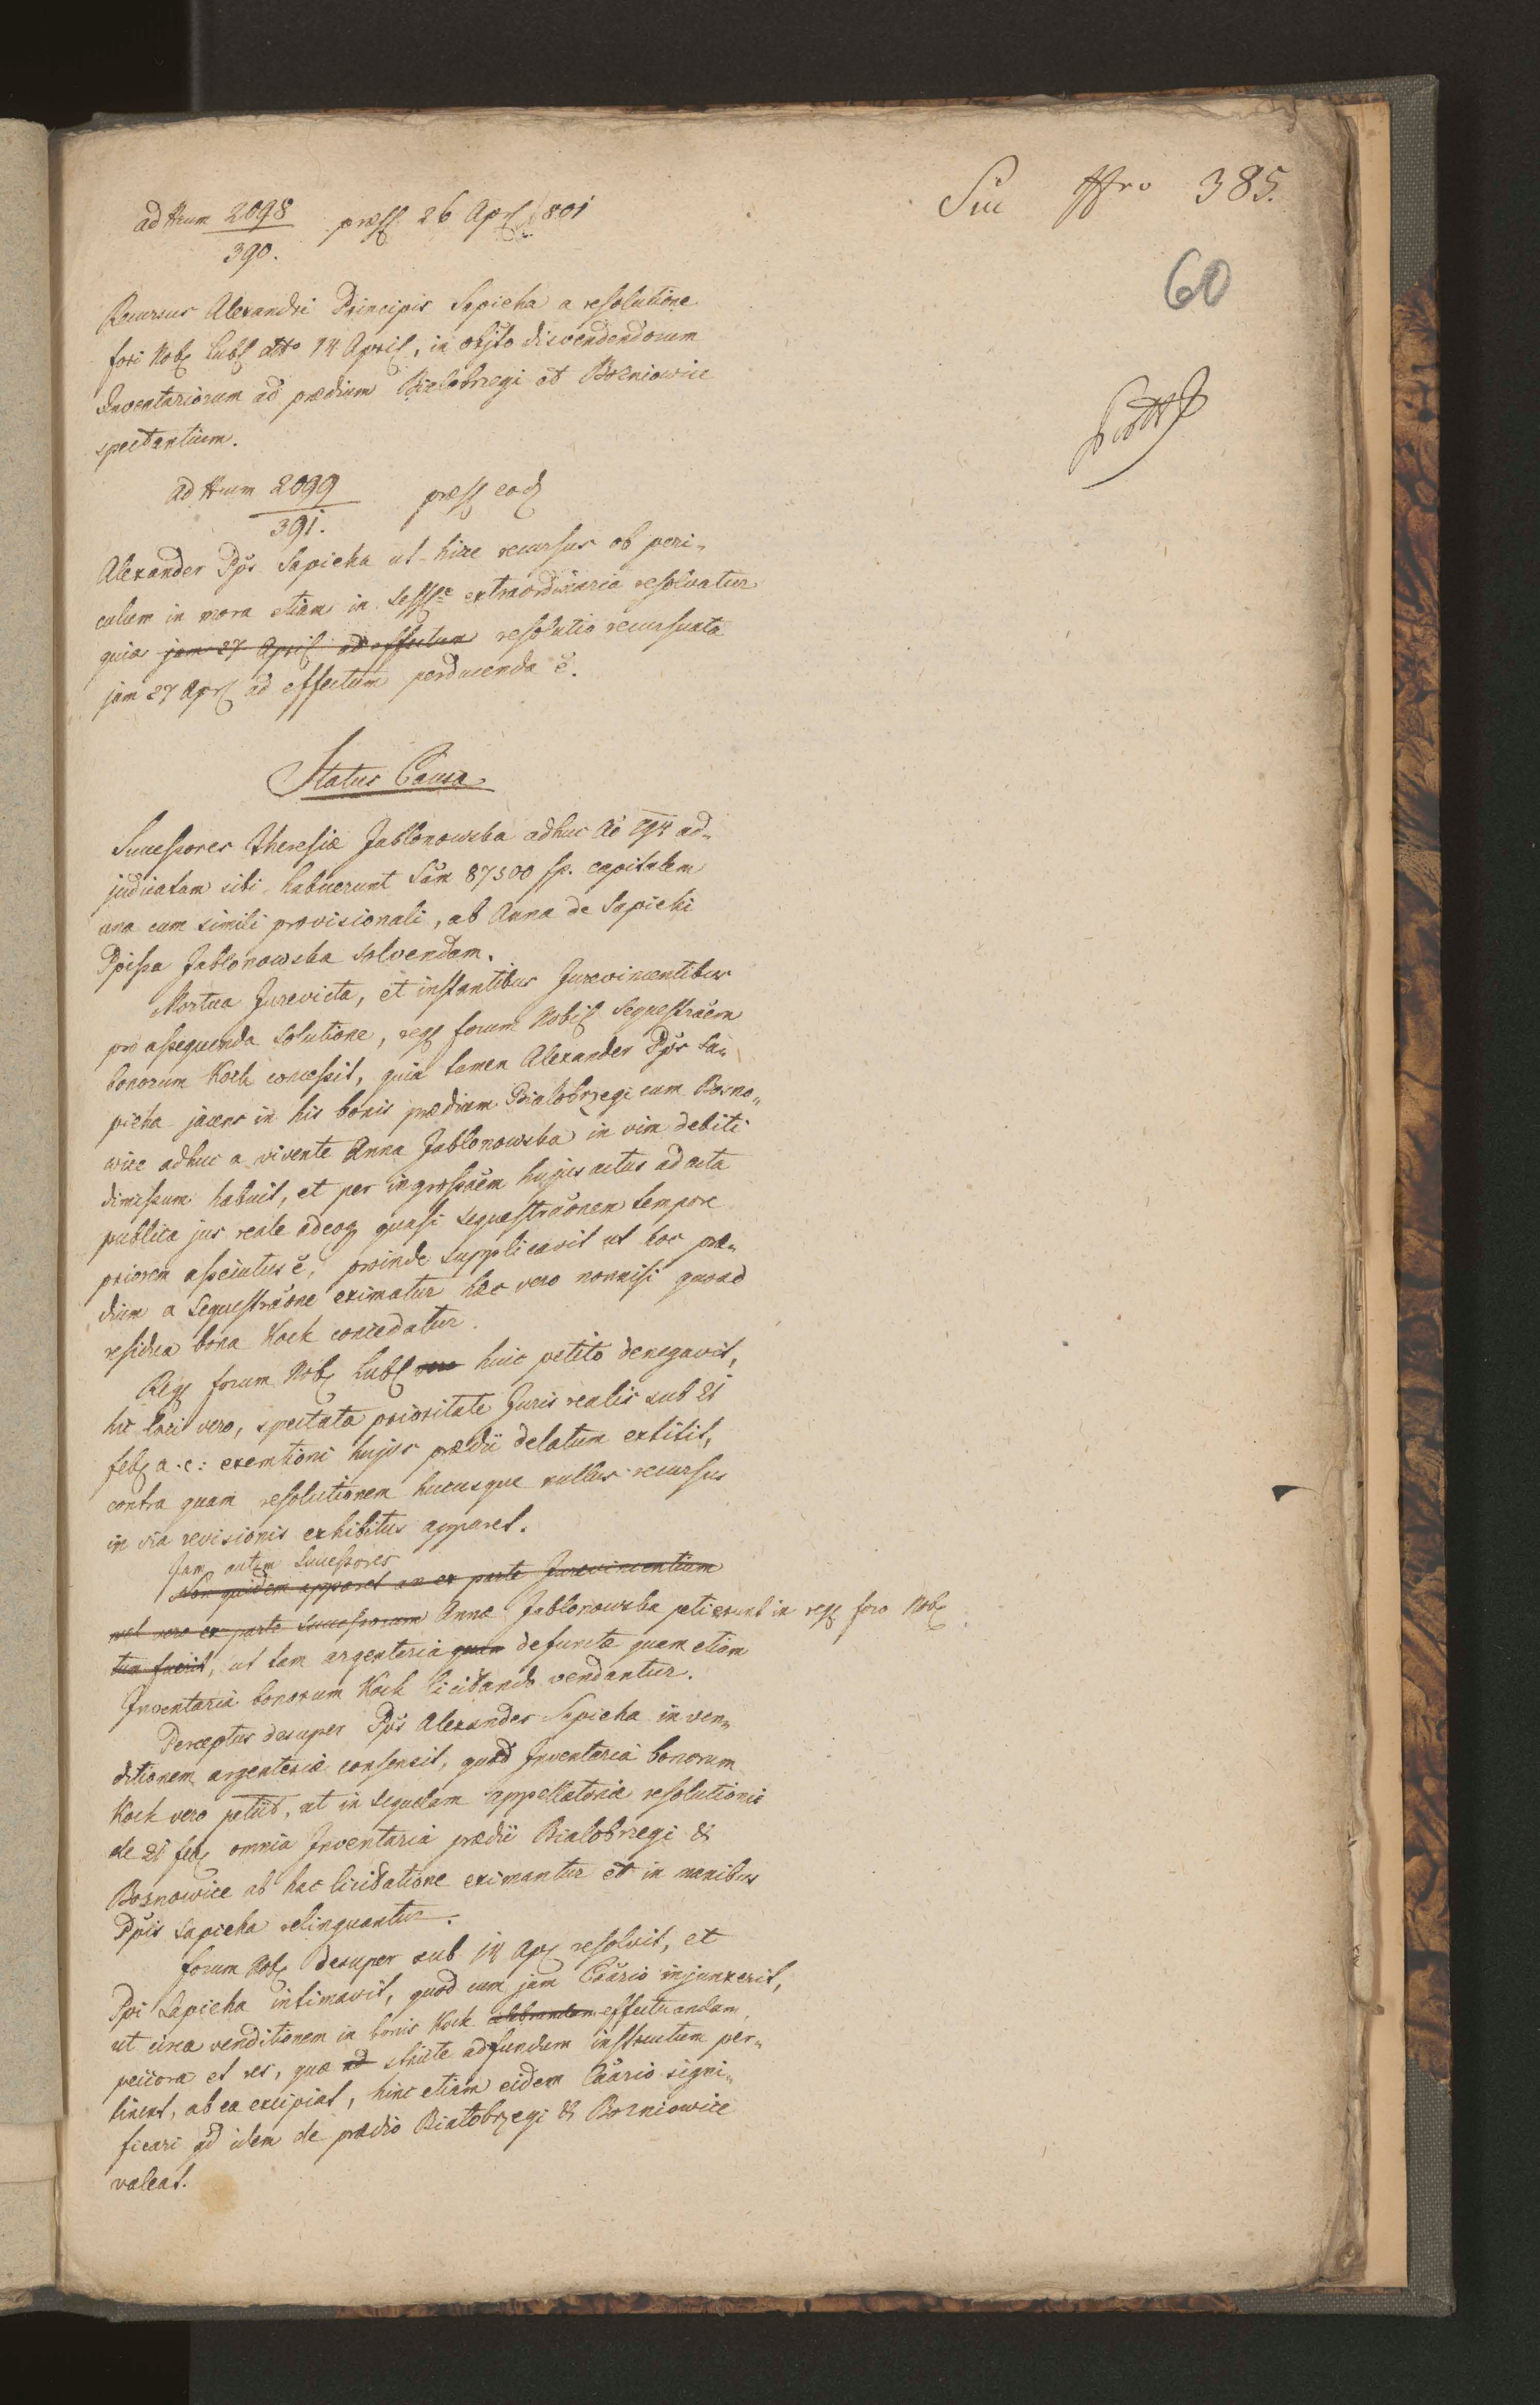 ad Nrum 2098/390. præs. 26 Apr. 801
Nro 385.
60
Recursus Alexandri Principis Sapieha a resolutione
fori Nob. Lubl. dtto 14 April., in objto disvendendorum
Inventariorum ad prædium Bialobrzegi et Bozniowice
spectantium.
ad Nrum 2099/391. præs. eod.
Alexander Pps Sapieha ut hice recursus ob peri„
culum in mora etiam in Sesse extraordinaria resolvatur
quia jam 27 April. ad effectum resolutio recursuata
jam 27 Apr. ad effectum perducenda ē.
Status Causa
Successores Theresiæ Jablonowska adhuc Ao 794 ad„
judicatam sibi habuerunt Sam 87500 fp. capitalem
una cum simili provisionali, ab Anna de Sapiehi
Ppissa Jablonowska solvendam.
Mortua Jurevicta, et instantibus Jurevincentibus
pro assequenda solutione, reg. forum Nobil. sequestraem
bonorum Kock concessit, quia tamen Alexander Pps Sa„
pieha jacens in his bonis prædium Bialobrzegi cum Bozno„
wice adhuc a vivente Anna Jablonowska in vim debiti
dimissum habuit, et per ingrossaem hujus actus ad acta
publica jus reale adeoq. quasi sequestraonem tempore
priorem assecutus ē, proinde supplicavit ut hoc præ„
dium a sequestraone eximatur hæc vero nonnisi quoad
residua bona Kock concedatur.
Reg. forum Nob. Lubl. vero huic petito denegavit,
hic loci vero, spectata prioritate Juris realis sub 21
feb. a. c: exemtioni hujus prædii delatum extitit,
contra quam resolutionem hucusque nullus recursus
in via revisionis exhibitus apparet.
Jam autem Successores
Non quidem apparet an ex parte Jurevincentium
vel vero ex parte Successorum Annæ Jablonowska petierunt in reg. foro Nob.
tum fuerit, ut tam argentaria quam defunctæ quam etiam
Inventaria bonorum Kock licitando vendantur.
Perceptus desuper Pps Alexander Sapieha in ven„
ditionem argenteriæ consensit, quoad Inventaria bonorum
Kock vero petiit, ut in sequelam appellatoria resolutionis
de 21 feb. omnia Inventaria prædii Bialobrzegi &
Boznowice ab hac licitatione eximantur et in manibus
Ppis Sapieha relinquantur.
forum Nob. desuper sub 14 Apr. resolvit, et
Ppi Sapieha intimavit, quod cum jam Cčario injunxerit,
ut circa venditionem in bonis Kock celebrandam effectuandam
peccora et res, quæ ad stricte ad fundum instructum per„
tinent, ab ea excipiat, hinc etiam eidem Cčario signi„
ficari qd idem de prædio Bialobrzegi & Bozniowice
valeat.